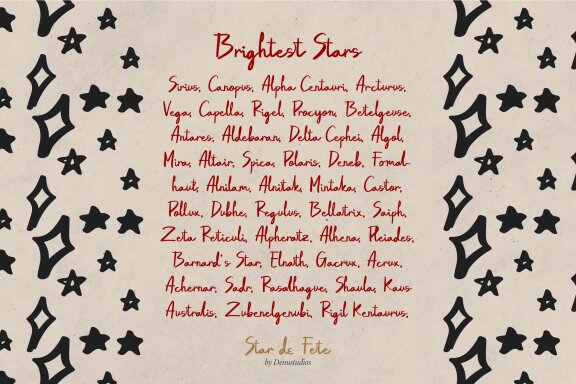 Brightest Stars
Sirius, Canopus, Alpha Centauri, Arcturus,
Vega, Capella, Rigel, Procyon, Betelgeuse,
Antares, Aldebaran, Delta Cephei, Algol,
Mira, Altair, Spica, Polaris, Deneb, Fomal-
haut, Alnilam, Alnitak, Mintaka, Castor,
Pollux, Dubhe, Regulus, Bellatrix, Saiph,
Zeta Reticuli, Alpheratz, Alhena, Pleiades,
Barnard's Star, Elnath, Gacrux, Acrux,
Achernar, Sadr, Rasalhague, Shaula, Kaus
Australis, Zubenelgenubi, Rigil Kentaurus,
Star de Fete
by Denustudios